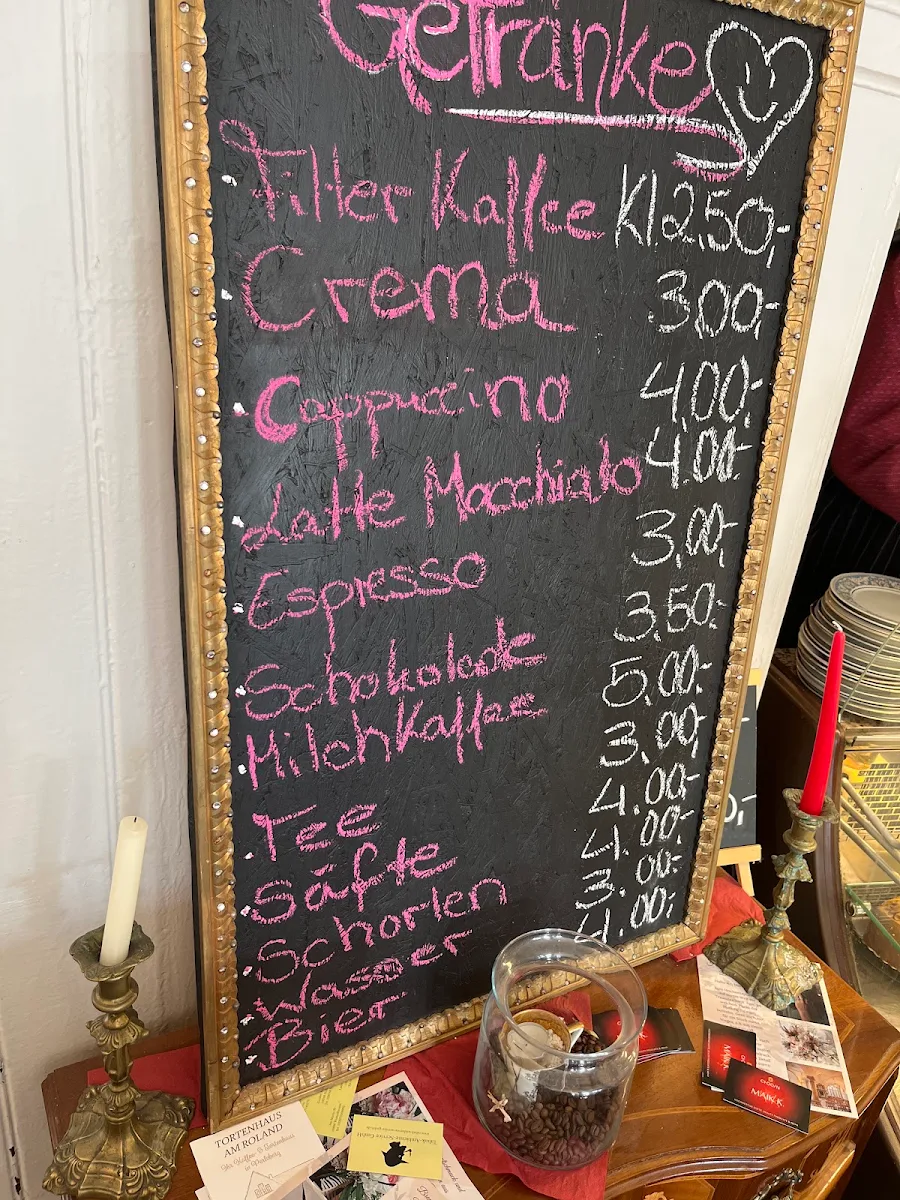 Getränke
Filter Kaffee Kl. 2,50,-
Crema 3,00,-
Cappuccino 4,00,-
Latte Macchiato 4,00,-
Espresso 3,00,-
Schokolade 3,50,-
Milchkaffee 5,00,-
Tee 3,00,-
Säfte 4.00,-
Schorlen 4.00,-
Wasser 3.00,-
Bier 4.00,-
TORTENHAUS
AM ROLAND